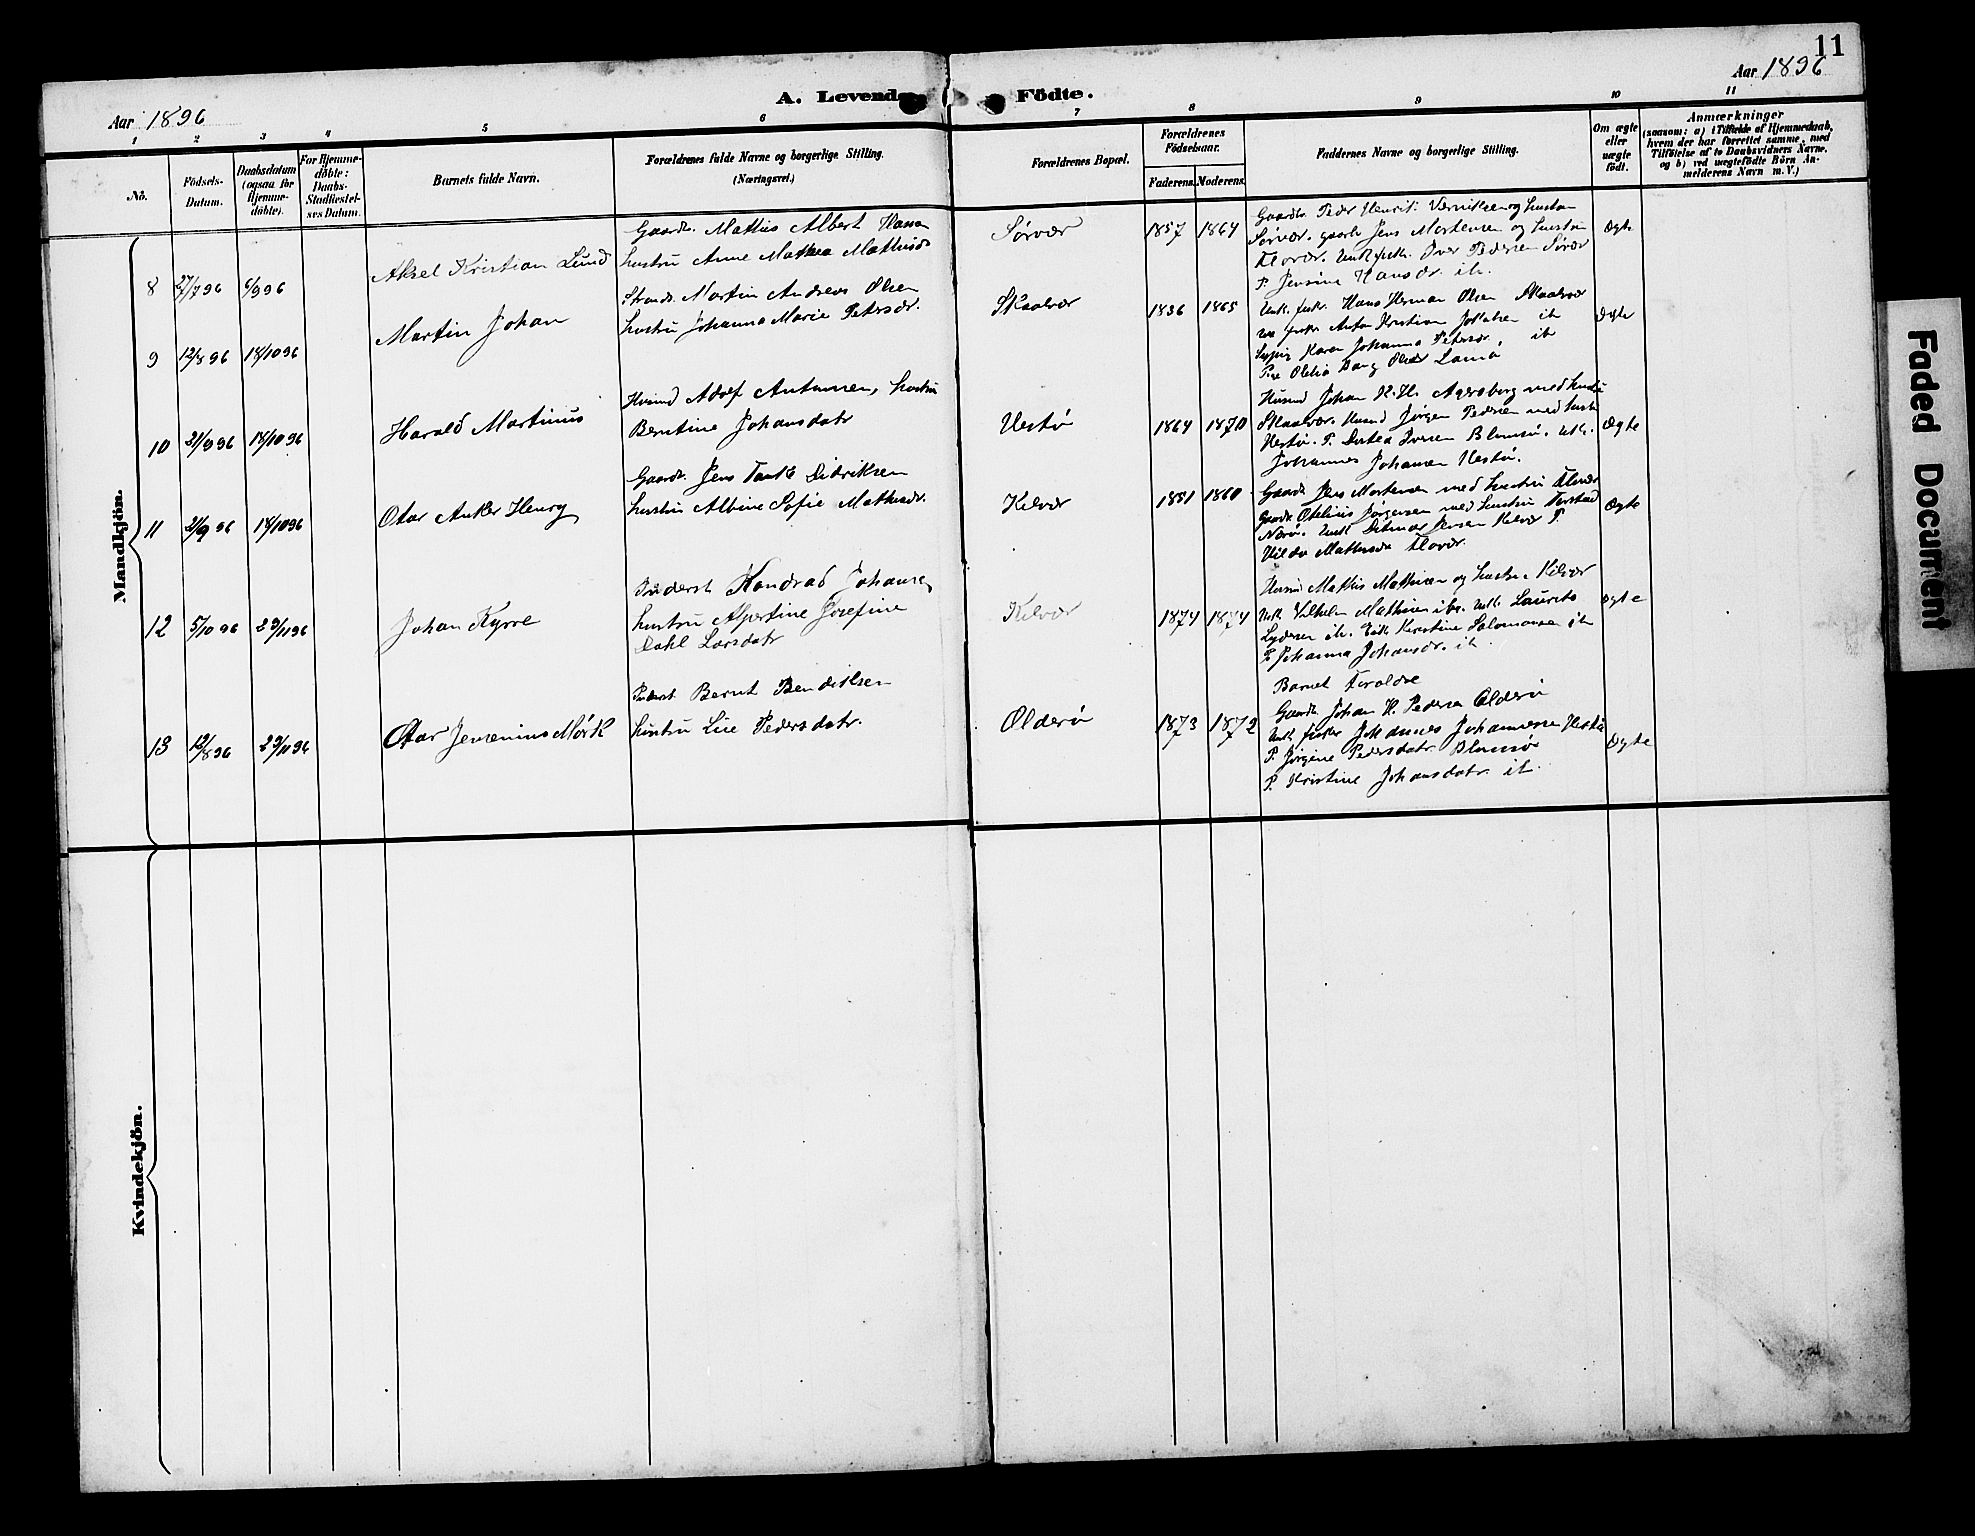 11
Aar 1896
A. Levende Födte.
Aar 1896
1 2 3 4 5 6 7 8 9 10 11
No.
Födsels-
Datum.
Daabsdatum
(ogsaa for
Hjemme-
döbte).
For Hjemme-
döbte:
Daabs-
Stadfæstel-
ses Datum.
Barnets fulde Navn.
Forældrenes fulde Navne og borgerlige Stilling.
(Næringsvei.)
Forældrenes Bopæl.
Forældrenes
Födselsaar.
Faderens. Moderens.
Faddernes Navne og borgerlige Stilling.
Om ægte
eller
uægte
födt.
Anmærkninger
(saasom: a) i Tilfælde af Hjemmedaab,
hvem der har forrettet samme, med
Tilföielse af to Daabsvidners Navne,
og b) ved uægtefödte Börn An-
melderens Navn m. V.)
Mandkjön.
8 27/7 96 6/9 96
Aksel Kristian Lund
Gaardb. Mathis Albert Hansen
hustru Anne Mathea Mathisdr
Sørvær
1857 1864
Gaardb. Peder Henrik og hustru
Sørvær. gaardb Jens Mortensen og hustru
Flovær. Unk. fisk. Iver Pedersen Sørvær
P. Jensine Hansdr. it.
Ægte
9 12/8 96 18/10 96
Martin Johan
Strands. Martin Andreas Olsen
hustru Johanna Marie Petersdr.
Skaalvær
1836 1865
Unk. fisk. Hans Herman Olsen Skaalvær
fisk. Anton Kristian it
Karen Johanna Petersdr. it
Pige Olelia Dang Lama
Ægte
10 21/9 96 18/10 96
Harald Martinus
Husmd Adolf Antonsen, hustru
Berntine Johansdatr
Vestø
1864 1870
Husmd Johan H. H. med hustru
Skaalvær. Husmd Jørgen Pedersen med hustru
P. Dortea Iversen Blomsø. Unk.
Johannes Johansen
Ægte
11 2/9 96 18/10 96
Otar Anker Henry
Gaardb. Jens Tank Didriksen
hustru Albine Sofie Mathisdr.
Kilvær
1851 1860
Gaardb Jens Mortensen med hustru Flovær
Gaardb Otelius Jørgensen med hustru
Unk Ditmar Jensen Kilvær P.
Hilda Mathisdr Flovær.
Ægte
12 5/10 96 29/11 96
Johan Kyrre
Inderst Kondrad Johansen
hustru Alpertine Josefine
Dahl Larsdatr
Kilvær
1874 1874
Husmd Mathis Mathisen og hustru Kilvær
Unk Vilhelm Mathisen ibr. Unk. Laurits
Lydersen it. Enk. Kirstine Salomonsen it
P. Johanna Johansdr. it
Ægte
13 12/8 96 29/11 96
Otar Jenænius Mørk
Inderst Bernt Bendiksen
hustru Lise Pedersdatr.
Olderø
1873 1872
Barnets Foraldre
Gaardb Johan H. Pedersen Olderø
Unk fisker Johannes Johannesen
P. Jørgine Pedersdatr. Blomsø
P. Kristine Johansdatr. it.
Ægte
Kvindekjön.
Faded Document